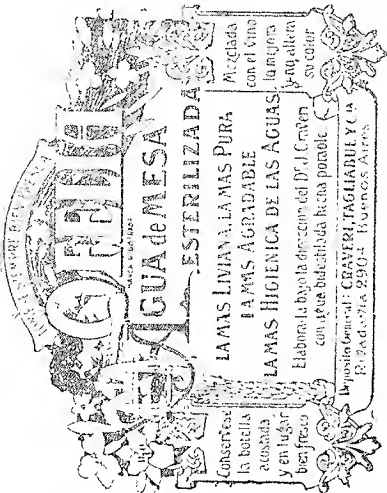 MARCA REGISTRADA
AGUA de MESA
ESTERILIZADA
LA MAS LIVIANA, LA MAS PURA
LA MAS AGRADABLE
LA MAS HIGIENICA DE LAS AGUAS
Elaborada bajo la direccion del Dr. J. Craveri
con agua bidestilada hecha potable
Deposito General: CRAVERI, TAGLIABUE Y CIA
Rivadavia 2904 Buenos Aires
Conservese
la botella
acostada
y en lugar
bien fresco
Mezclada
con el vino
lo mejora
y no altera
su color